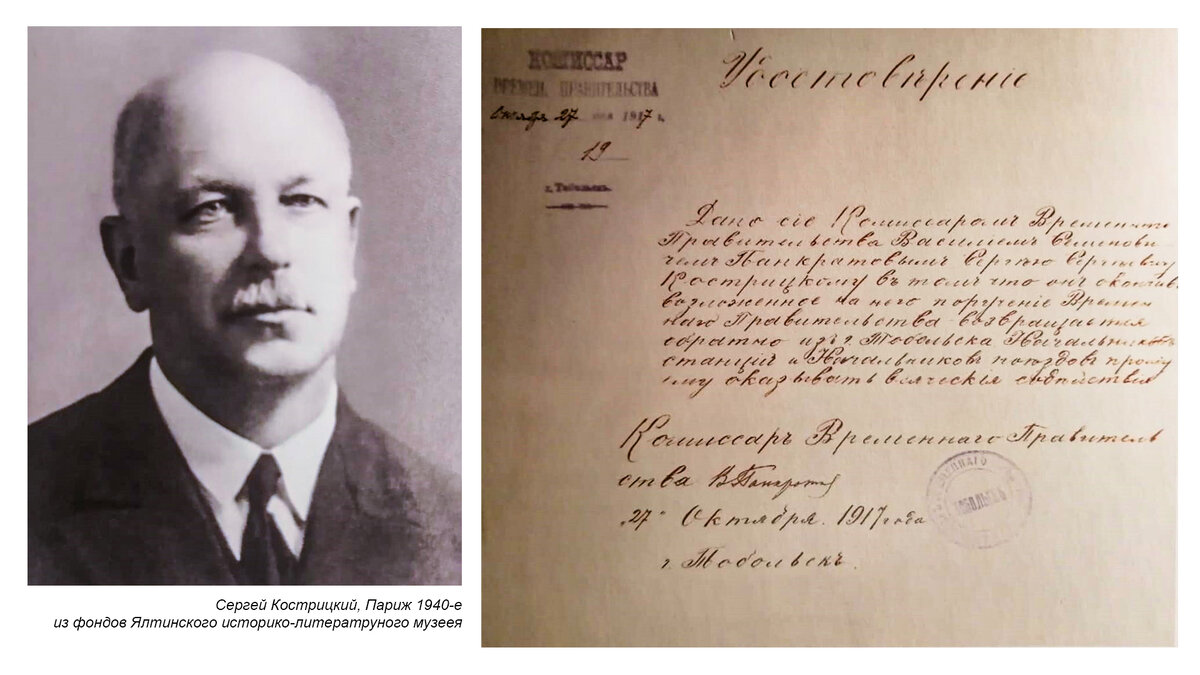 Сергей Кострицкий, Париж 1940-е
из фондов Ялтинского историко-литератруного музеея
КОМИССАР
ВРЕМЕН. ПРАВИТЕЛЬСТВА
Октября 27 1917 г.
19
г. Тобольскъ.
Удостовѣреніе
Дано сіе Комиссаромъ Временнаго
Правительства Василіемъ Семенови-
чемъ Панкратовымъ Сергѣю Сергѣевичу
Кострицкому въ томъ что онъ окончивъ
возложенное на него порученіе Времен
наго Правительства возвращается
обратно изъ г. Тобольска Начальниковъ
станцій и Начальниковъ поѣздовъ прошу
ему оказывать всяческія содѣйствія
Комиссаръ Временнаго Правитель
ства В Панкратовъ
"27" Октября. 1917 года
г. Тобольскъ.
ТОБОЛЬСКЪ